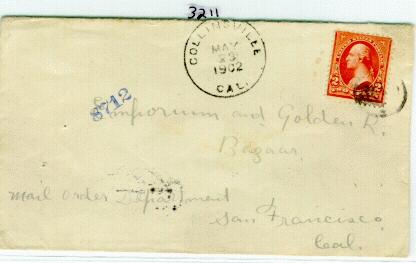 3211
COLLINSVILLE
MAY
23
1902
CAL.
8712
Emporium and Golden R.
Bazaar
Mail Order Department
San Francisco
Cal.